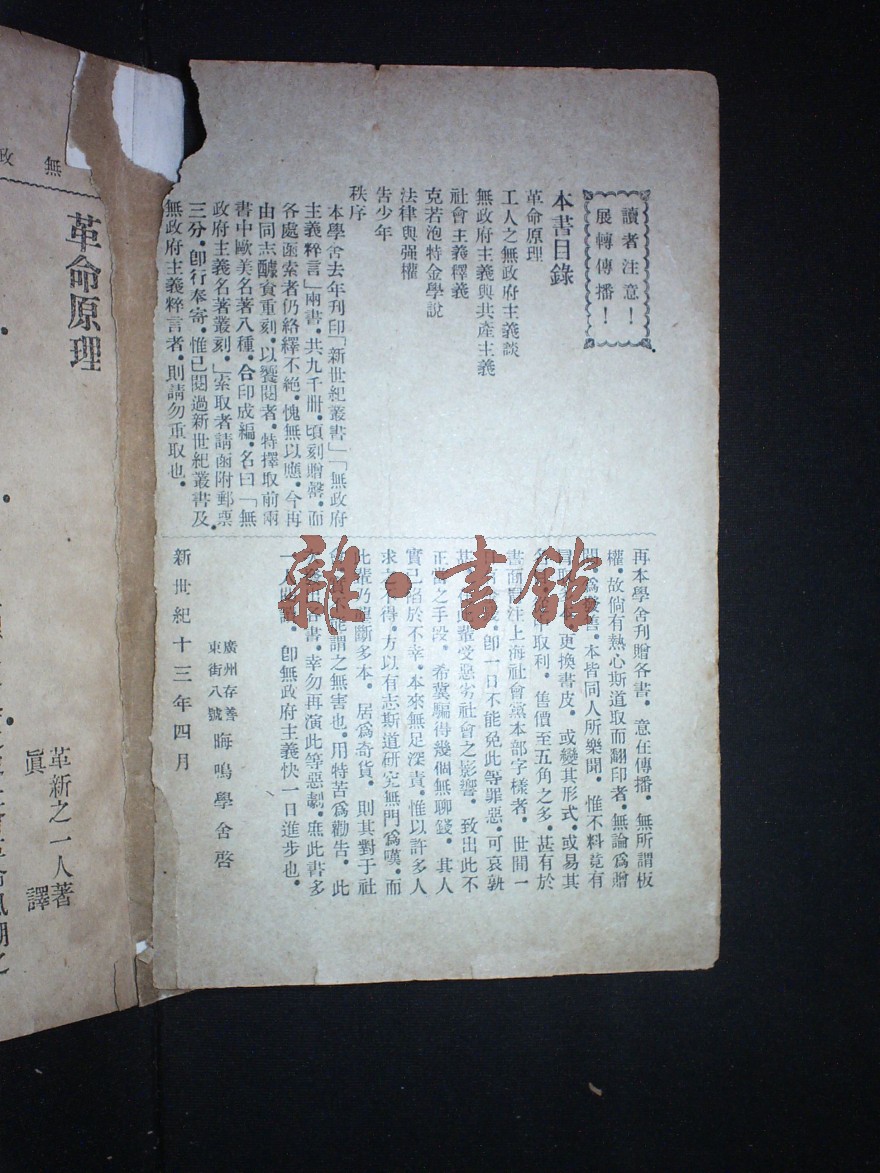 讀者注意！
展轉傳播！
本書目錄
革命原理
工人之無政府主義談
無政府主義與共產主義
社會主義釋義
克若泡特金學說
法律與强權
告少年
秩序
本學舍去年刊印「新世紀叢書」「無政府
主義粹言」兩書．共九千冊．頃刻贈罄．而
各處函索者仍絡繹不絕．愧無以應．今再
由同志醵資重刻．以饗閱者．特擇取前兩
書中歐美名著八種．合印成編．名曰「無
政府主義名著叢刻．」索取者請函附郵票
三分．卽行奉寄．惟已閱過新世紀叢書及
無政府主義粹言者．則請勿重取也．
再本學舍刊贈各書．意在傳播．無所謂板
權．故倘有熱心斯道取而翻印者．無論爲贈
爲善．本皆同人所樂聞．惟不料竟有
更換書皮．或變其形式．或易其
取利．售價至五角之多．甚有於
書面上海社會黨本部字樣者．世間一
卽一日不能免此等罪惡．可哀孰
輩受惡劣社會之影響．致出此不
正當之手段．希冀騙得幾個無聊錢．其人
實已陷於不幸．本來無足深責．惟以許多人
求得．方以有志斯道研究無門爲嘆．而
此輩乃壟斷多本．居爲奇貨．則其對于社
能謂之無害也．用特苦爲勸告．此
書．幸勿再演此等惡劇．庶此書多
一人．卽無政府主義快一日進步也．
廣州存善
東街八號
晦鳴學舍啓
新世紀十三年四月
雜·書館
無政
革命原理
革新之一人著
眞譯